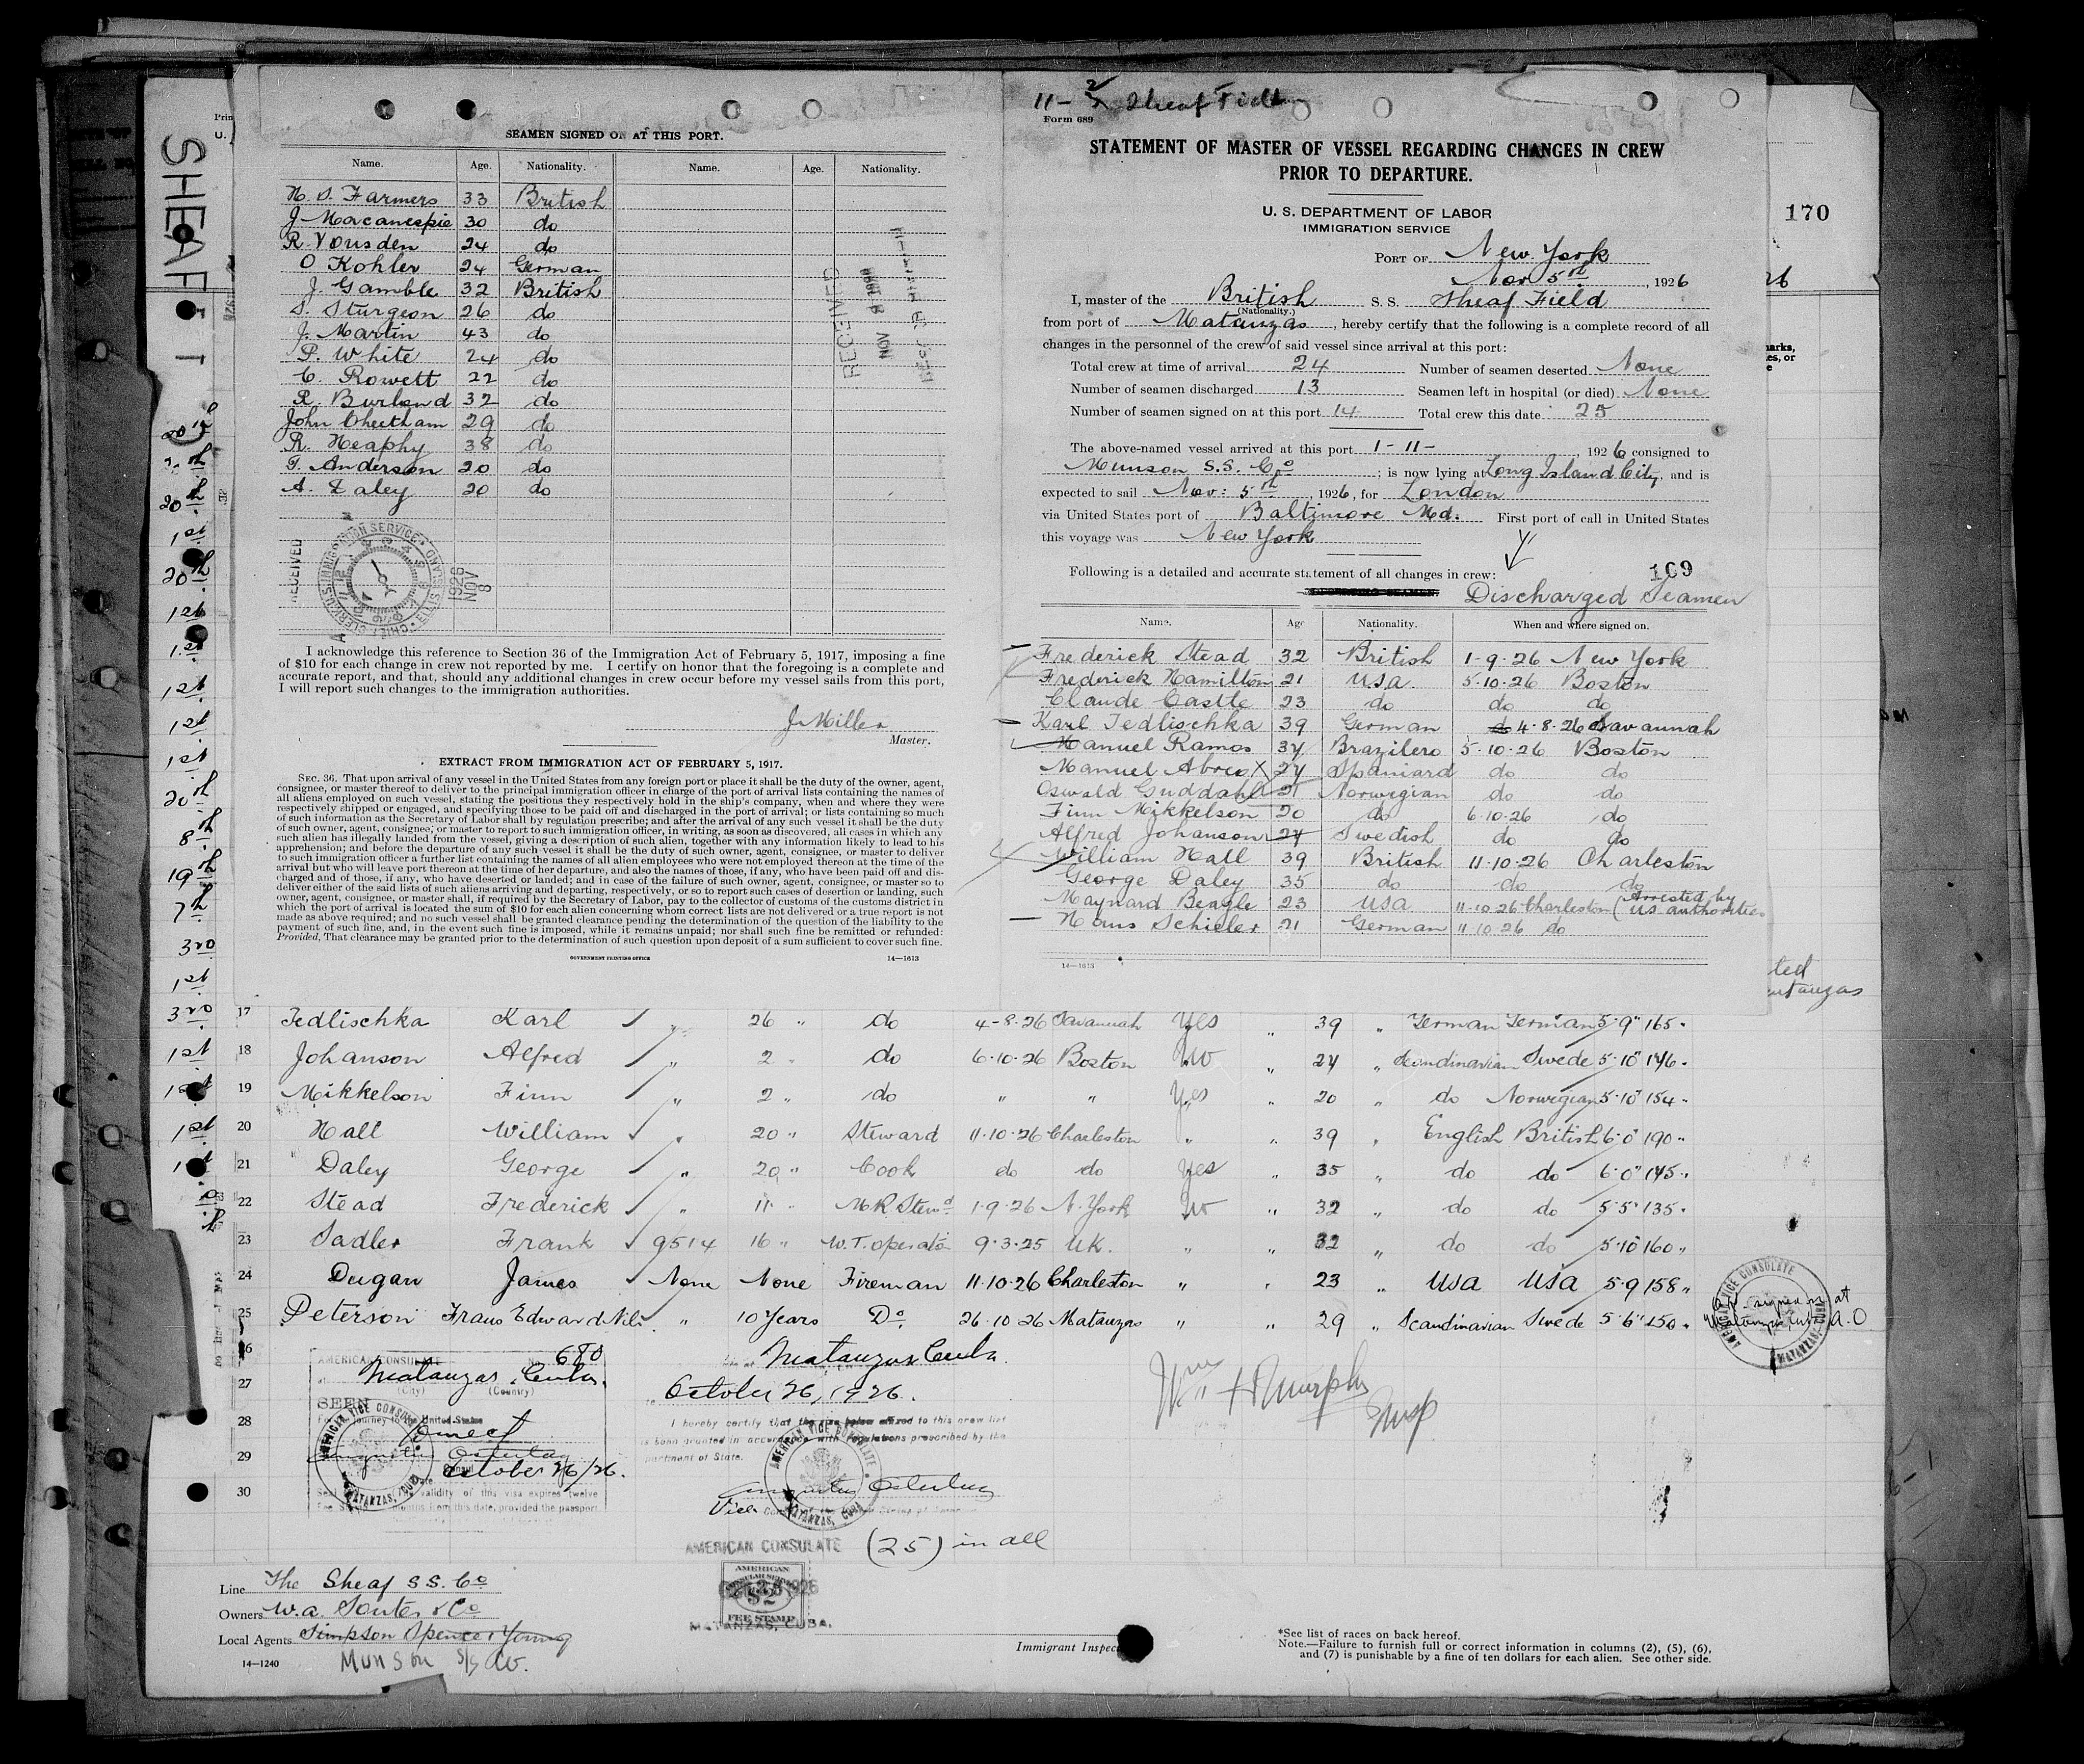 SHEAF
SEAMEN SIGNED ON AT THIS PORT.
Name. Age. Nationality. Name. Age. Nationality.
H. S. Farmers 33 British
J. Macanespie 30 do
R. Vousden 24 do
O Kohler 24 German
J. Gamble 32 British
S. Sturgeon 26 do
J. Martin 43 do
P. White 24 do
C. Rowett 22 do
R. Burland 32 do
John Cheetham 29 do
R. Heaphy 38 do
T. Anderson 20 do
A. Daley 20 do
RECEIVED
RECEIVED
1926 NOV 8
I acknowledge this reference to Section 36 of the Immigration Act of February 5, 1917, imposing a fine
of $10 for each change in crew not reported by me. I certify on honor that the foregoing is a complete and
accurate report, and that, should any additional changes in crew occur before my vessel sails from this port,
I will report such changes to the immigration authorities.
J. Miller
Master.
EXTRACT FROM IMMIGRATION ACT OF FEBRUARY 5, 1917.
SEC. 36. That upon arrival of any vessel in the United States from any foreign port or place it shall be the duty of the owner, agent,
consignee, or master thereof to deliver to the principal immigration officer in charge of the port of arrival lists containing the names of
all aliens employed on such vessel, stating the positions they respectively hold in the ship's company, when and where they were
respectively shipped or engaged, and specifying those to be paid off and discharged in the port of arrival; or lists containing so much
of such information as the Secretary of Labor shall by regulation prescribe; and after the arrival of any such vessel it shall be the duty
of such owner, agent, consignee, or master to report to such immigration officer, in writing, as soon as discovered, all cases in which any
such alien has illegally landed from the vessel, giving a description of such alien, together with any information likely to lead to his
apprehension; and before the departure of any such vessel it shall be the duty of such owner, agent, consignee, or master to deliver
to such immigration officer a further list containing the names of all alien employees who were not employed thereon at the time of the
arrival but who will leave port thereon at the time of her departure, and also the names of those, if any, who have been paid off and dis-
charged and of those, if any, who have deserted or landed; and in case of the failure of such owner, agent, consignee, or master so to
deliver either of the said lists of such aliens arriving and departing, respectively, or so to report such cases of desertion or landing, such
owner, agent, consignee, or master shall, if required by the Secretary of Labor, pay to the collector of customs of the customs district in
which the port of arrival is located the sum of $10 for each alien concerning whom correct lists are not delivered or a true report is not
made as above required; and no such vessel shall be granted clearance pending the determination of the question of the liability to the
payment of such fine, and, in the event such fine is imposed, while it remains unpaid; nor shall such fine be remitted or refunded:
Provided, That clearance may be granted prior to the determination of such question upon deposit of a sum sufficient to cover such fine.
GOVERNMENT PRINTING OFFICE 14—1613
11- Sheaf Field
Form 689
STATEMENT OF MASTER OF VESSEL REGARDING CHANGES IN CREW
PRIOR TO DEPARTURE.
U. S. DEPARTMENT OF LABOR
IMMIGRATION SERVICE
PORT OF New York
Nov 5th, 1926
I, master of the British S. S. Sheaf Field
(Nationality.)
from port of Matanzas, hereby certify that the following is a complete record of all
changes in the personnel of the crew of said vessel since arrival at this port:
Total crew at time of arrival 24 Number of seamen deserted None
Number of seamen discharged 13 Seamen left in hospital (or died) None
Number of seamen signed on at this port 14 Total crew this date 25
The above-named vessel arrived at this port 1-11-, 1926 consigned to
Munson S.S. Co; is now lying at Long Island City, and is
expected to sail Nov: 5th, 1926, for London
via United States port of Baltimore Md. First port of call in United States
this voyage was New York
Following is a detailed and accurate statement of all changes in crew:
169
Discharged Seamen
Name. Age Nationality. When and where signed on.
Frederick Stead 32 British 1-9-26 New York
Frederick Hamilton 21 USA. 5-10-26 Boston
Claude Castle 23 do do do
Karl Tedlischka 39 German 4-8-26 Savannah
Manuel Ramos 34 Brazilero 5-10-26 Boston
Manuel Abreo X 24 Spaniard do do
Oswald Guddahl 21 Norwegian do do
Finn Mikkelson 20 do 6-10-26 do
Alfred Johanson 24 Swedish do do
William Hall 39 British 11-10-26 Charleston
George Daley 35 do do do
Maynard Beagle 23 USA 11-10-26 Charleston (Arrested by US authorities
Hans Schieler 21 German 11-10-26 do
14—1613
170
17 Tedlischka Karl " 26 " do 4-8-26 Savannah Yes " 39 " German German 5'9" 165"
18 Johanson Alfred " 2 " do 6-10-26 Boston No " 24 " Scandinavian Swede 5'10" 146"
19 Mikkelson Finn " 2 " do " " Yes " 20 " do Norwegian 5'10" 154"
20 Hall William " 20 " Steward 11-10-26 Charleston " " 39 " English British 6'0" 190"
21 Daley George " 20 " Cook do do Yes " 35 " do do 6'0" 145"
22 Stead Frederick " 11 " M.R. Stewd 1-9-26 N. York No " 32 " do do 5'5" 135"
23 Sadler Frank 9514 16 " W.T. operator 9-3-25 UK. " " 32 " do do 5'10" 160"
24 Dugan James None None Fireman 11-10-26 Charleston " " 23 " USA USA 5'9 158"
25 Peterson Frans Edward Nils " 10 Years Do 26-10-26 Matanzas " " 29 " Scandinavian Swede 5'6" 150"
26
27
28
29
30
AMERICAN CONSULATE 680
Matanzas, Cuba.
(City) (Country)
SEEN
For the journey to the United States
Direct
Consul
October 26/26.
Matanzas Cuba.
October 26, 1926.
I hereby certify that the visa below affixed to this crew list
has been granted in accordance with regulations prescribed by the
Department of State.
Vice
AMERICAN VICE CONSULATE
MATANZAS, CUBA
AMERICAN CONSULATE
(25) in all
AMERICAN
$2
FEE STAMP
MATANZAS, CUBA.
Wm H Murphy
Insp
Line The Sheaf S S. Co
Owners W.A. Souter & Co
Local Agents Simpson Spence & Young
Munson S/S Co.
14—1240
Immigrant Inspec
*See list of races on back hereof.
Note.—Failure to furnish full or correct information in columns (2), (5), (6),
and (7) is punishable by a fine of ten dollars for each alien. See other side.